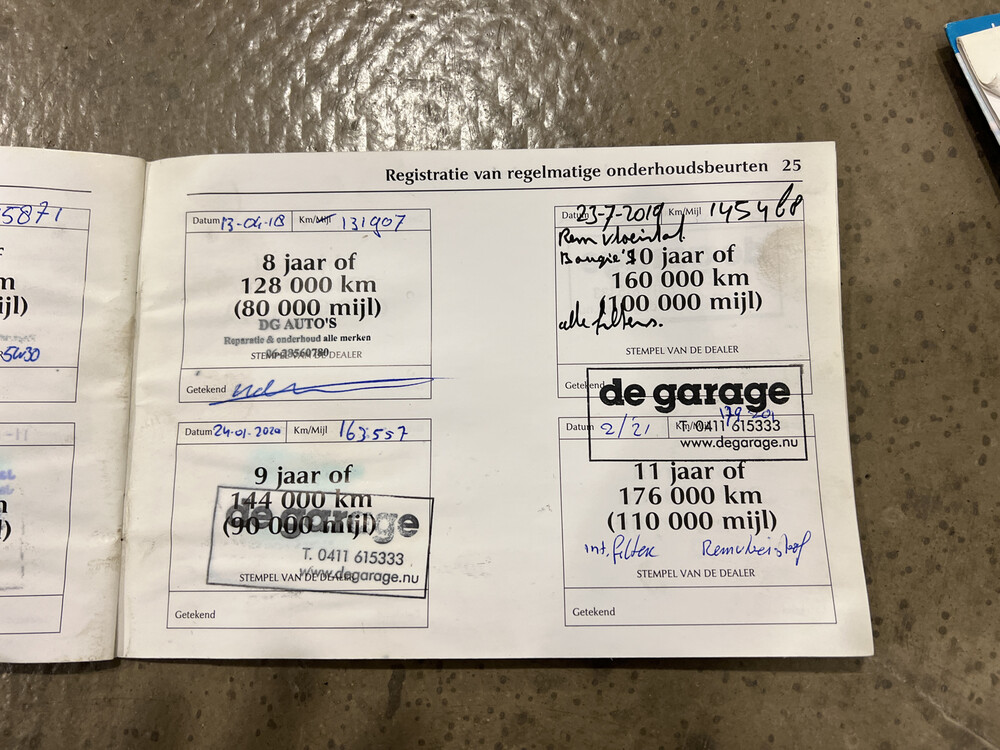 Registratie van regelmatige onderhoudsbeurten 25
5871
m
ijl)
5W30
Datum 13-04-18 Km/Mijl 131907
8 jaar of
128 000 km
(80 000 mijl)
DG AUTO'S
Reparatie & onderhoud alle merken
06-38560780
STEMPEL VAN DE DEALER
Getekend
Datum 23-7-2019 Km/Mijl 145468
Rem vloeistof
Bougie's
10 jaar of
160 000 km
(100 000 mijl)
alle filters.
STEMPEL VAN DE DEALER
Getekend
de garage
T. 0411 615333
www.degarage.nu
Datum 24-01-2020 Km/Mijl 163557
9 jaar of
144 000 km
(90 000 mijl)
de garage
T. 0411 615333
www.degarage.nu
STEMPEL VAN DE DEALER
Getekend
Datum 2/21 Km/Mijl 179-201
11 jaar of
176 000 km
(110 000 mijl)
int. filter Remvloeistof
STEMPEL VAN DE DEALER
Getekend